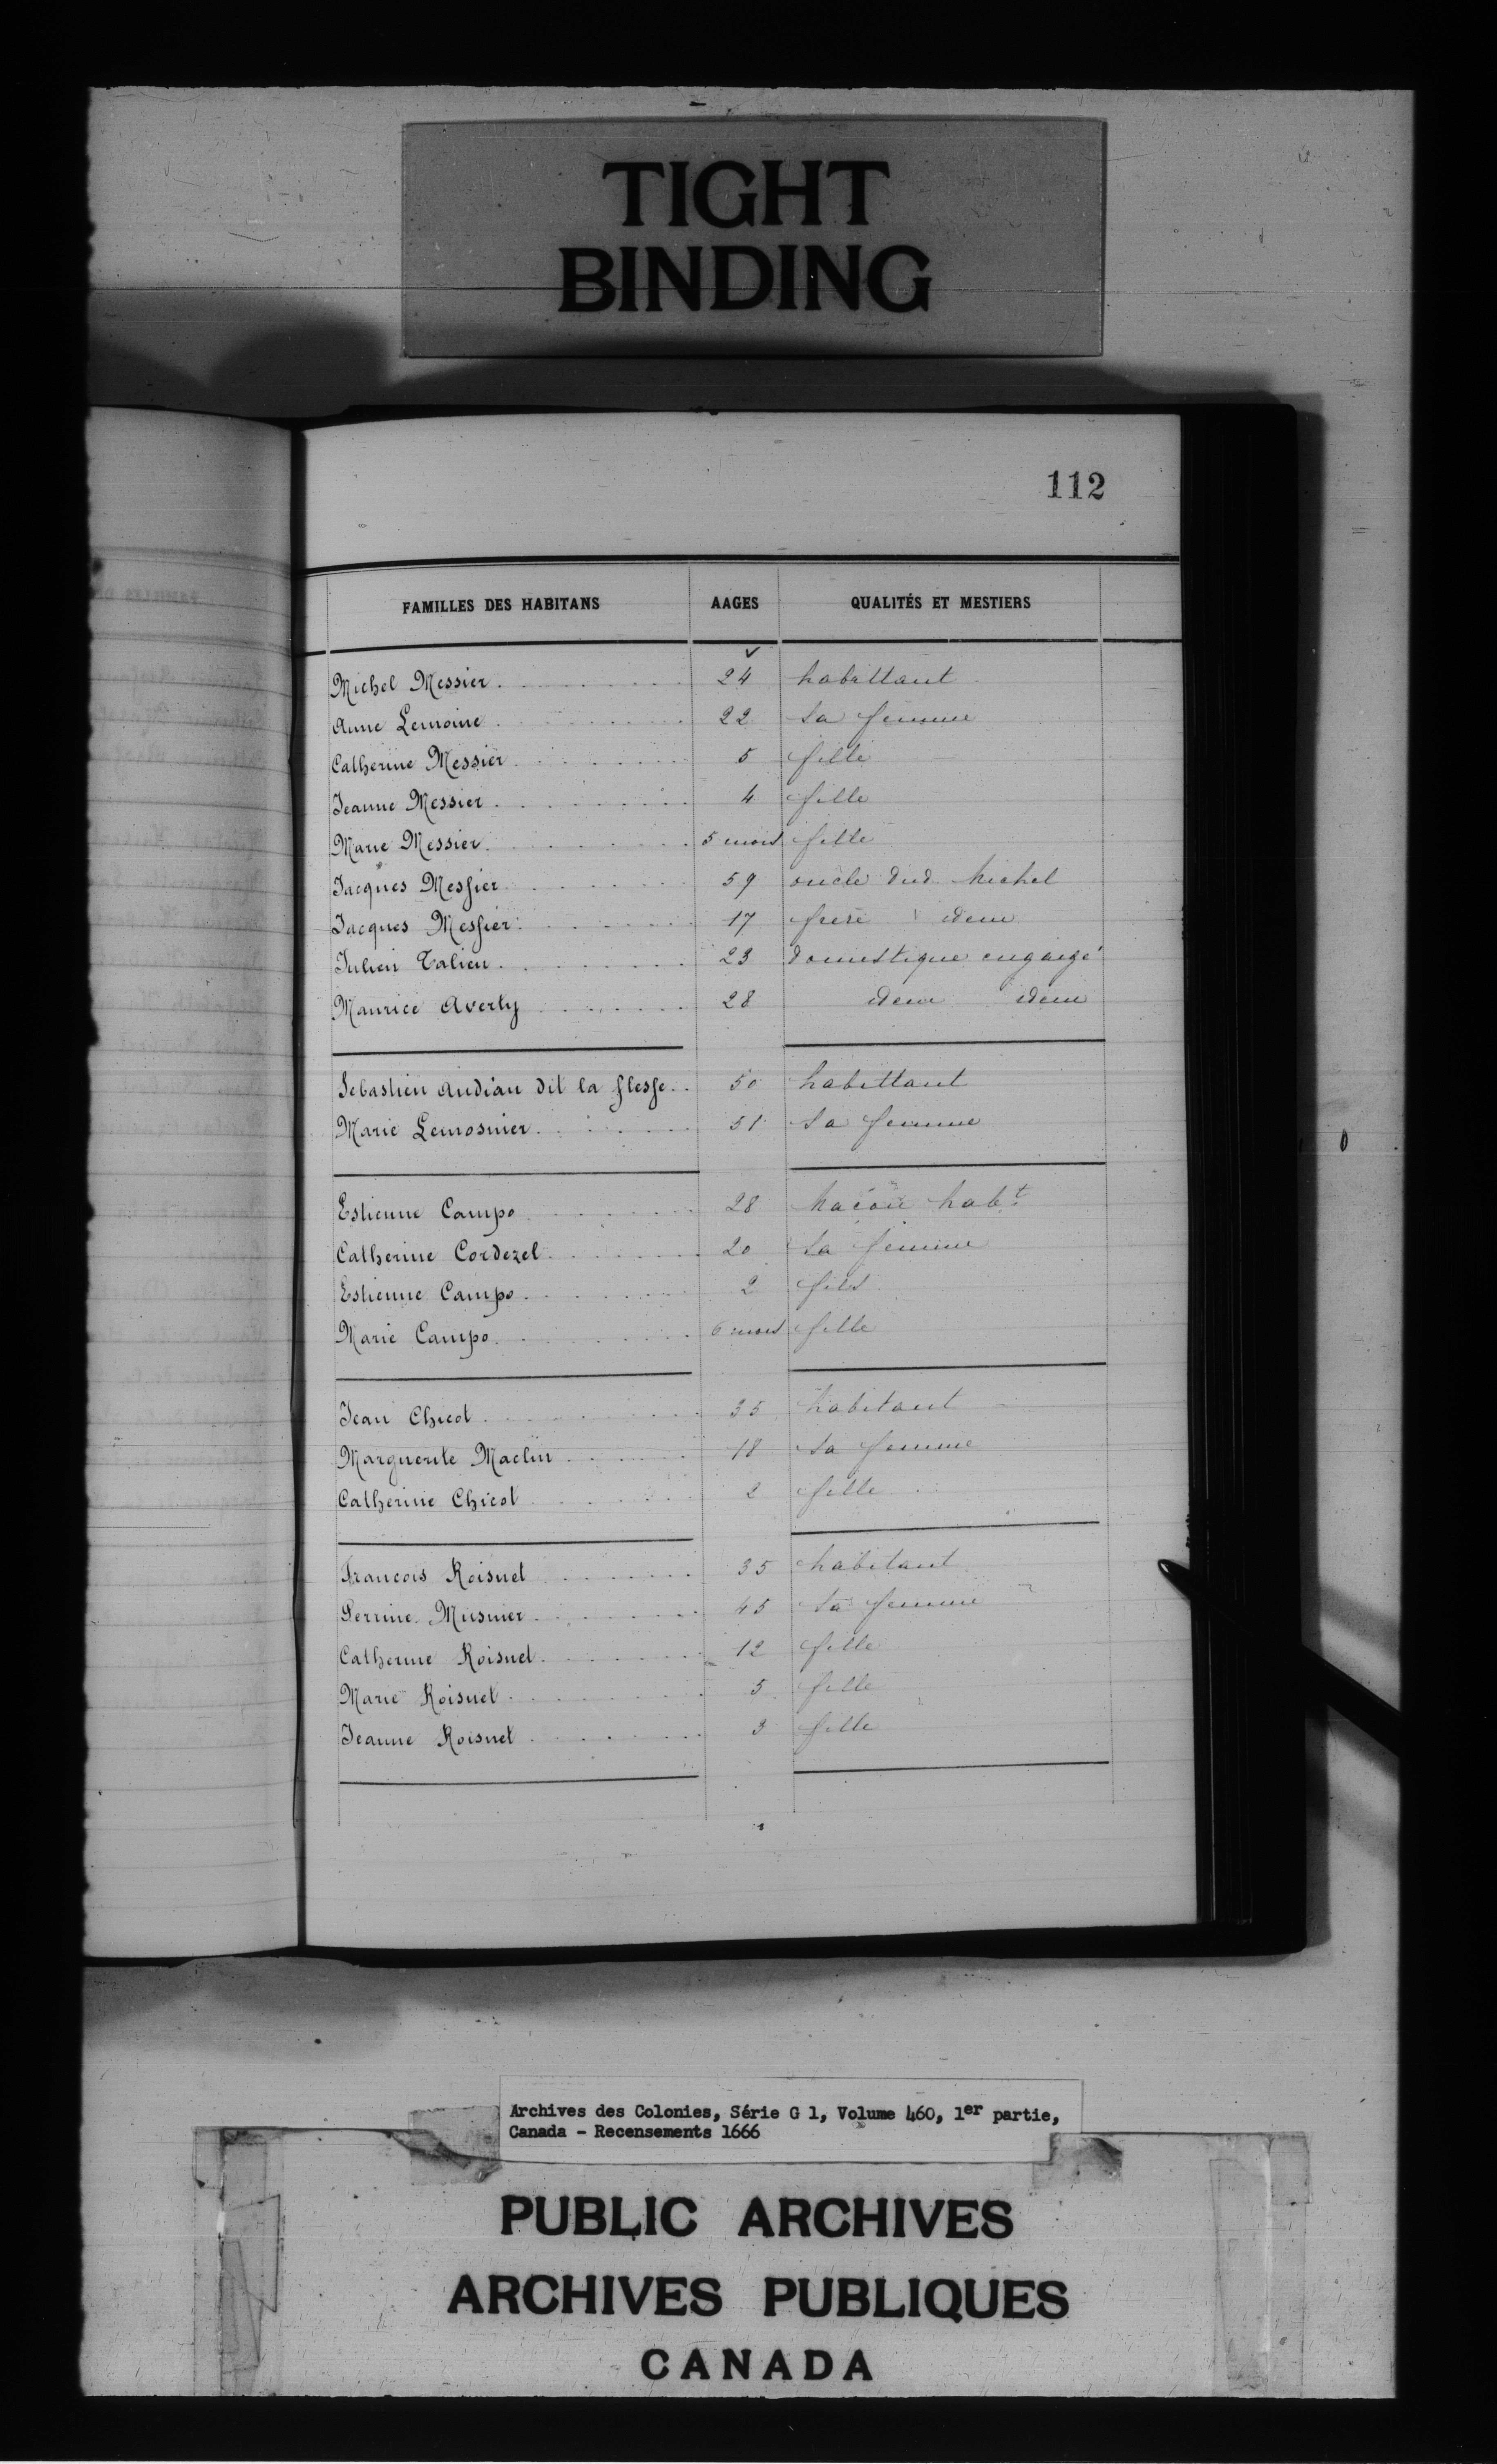 TIGHT
BINDING
112
FAMILLES DES HABITANS AAGES QUALITÉS ET MESTIERS
Michel Messier 24 habittant
Anne Lemoine 22 sa femme
Catherine Messier 5 fille
Jeanne Messier 4 fille
Marie Messier 5 mois fille
Jacques Messier 59 oncle dud. Michel
Jacques Messier 17 frere idem
Julien Talien 23 domestique engaigé
Maurice Averty 28 idem idem
Sebastien Audiau dit la flesse 50 habittant
Marie Lemosnier 51 sa femme
Estienne Campo 28 Maçon habt
Catherine Cordezel 20 sa femme
Estienne Campo 2 fils
Marie Campo 6 mois fille
Jean Chicot 35 habitant
Marguerite Maclin 18 sa femme
Catherine Chicot 2 fille
Francois Roisnel 35 habitant
Perrine Musnier 45 sa femme
Catherine Roisnel 12 fille
Marie Roisnel 5 fille
Jeanne Roisnel 3 fille
Archives des Colonies, Série G 1, Volume 460, 1er partie,
Canada - Recensements 1666
PUBLIC ARCHIVES
ARCHIVES PUBLIQUES
CANADA